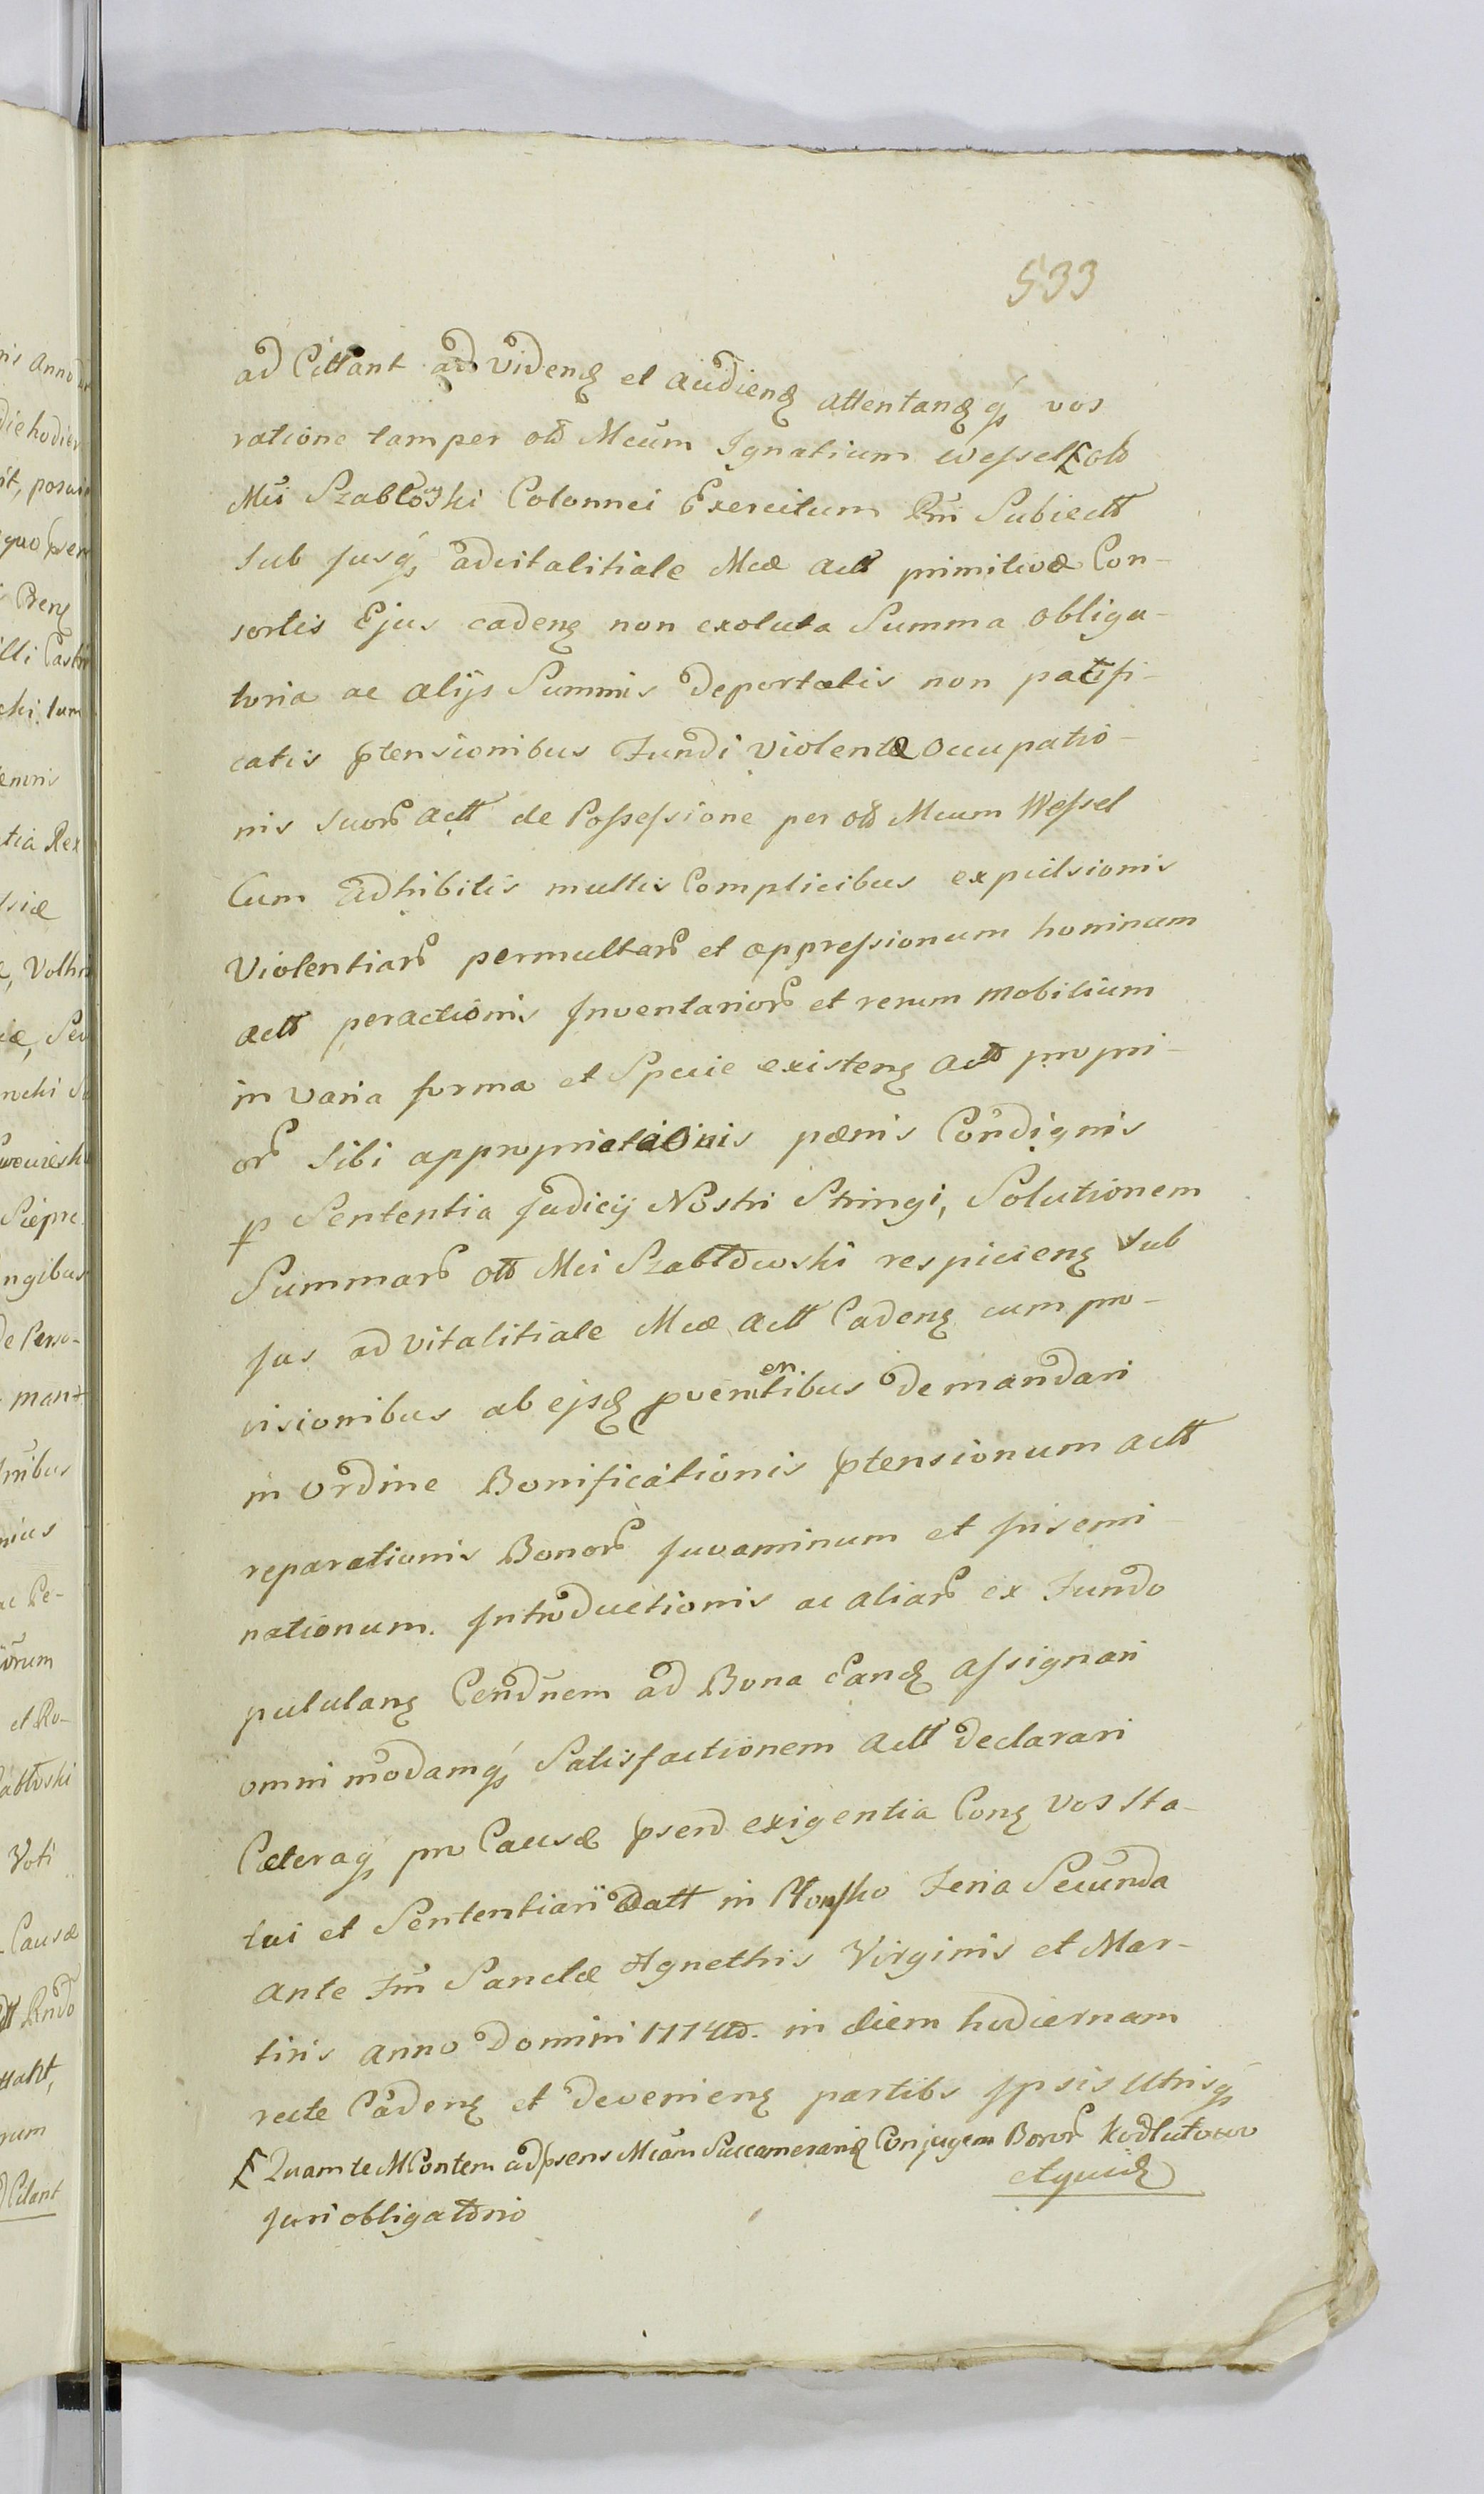 533
ad Cittant ad videnđ et audienđ attentanđ q́ꝫ vos
ratione tam per oĺb Mcum Ignatium Wessel [olb
Mci Szabłowski Colonnei Exercitum Rni Subiectt
sub jusq́ꝫ advitalitiale Mcæ actt primitivæ Con-
sortis Ejus cadenꝫ non exoluta Summa obliga-
toria ac alijs Summis deportatis non pacifi-
catis ptensionibus Fundi violentæ occupatio-
nis suor actt de Possessione per olb Mcum Wessel
Cum adhibitis multis Complicibus expulsionis
Violentiar permultar et oppressionum hominum
actt peractionis Inventarior et rerum mobilium
in varia forma et Specie existenꝫ actt propri-
or sibi appropriationis pænis Condignis
p Sententia Judicij Nostri Stringi, Solutionem
Summar olb Mci Szabłowski respicienꝫ sub
jus ad vitalitiale Mcæ actt Cadenꝫ cum pro-
visionibus ab ejsđ pvenientibus demandari
in ordine Bonificationis ptensionum actt
reparationis Bonor juvaminum et inisemi-
nationum. Introductionis ac aliar ex Fundo
pululanꝫ Condnem ad Bona eanđ assignari
omni modamq́ꝫ Satisfactionem actt declarari
Cæteraqꝫ pro Causæ psend exigentia Conꝫ vos sta-
tui et Sententiari datt in Płońsko Feria Secunda
ante Fm Sanctæ Agnethis Virginis et Mar-
tiris anno Domini 1774to. in diem hodiernam
recte Cadenꝫ et devenienꝫ partibs ipsis Utrisqꝫ
[ Quam te MContem adpsens Mcam Succamerariđ Conjugem Bonor Kodlutowo
Juri obligatorio
etquiđ